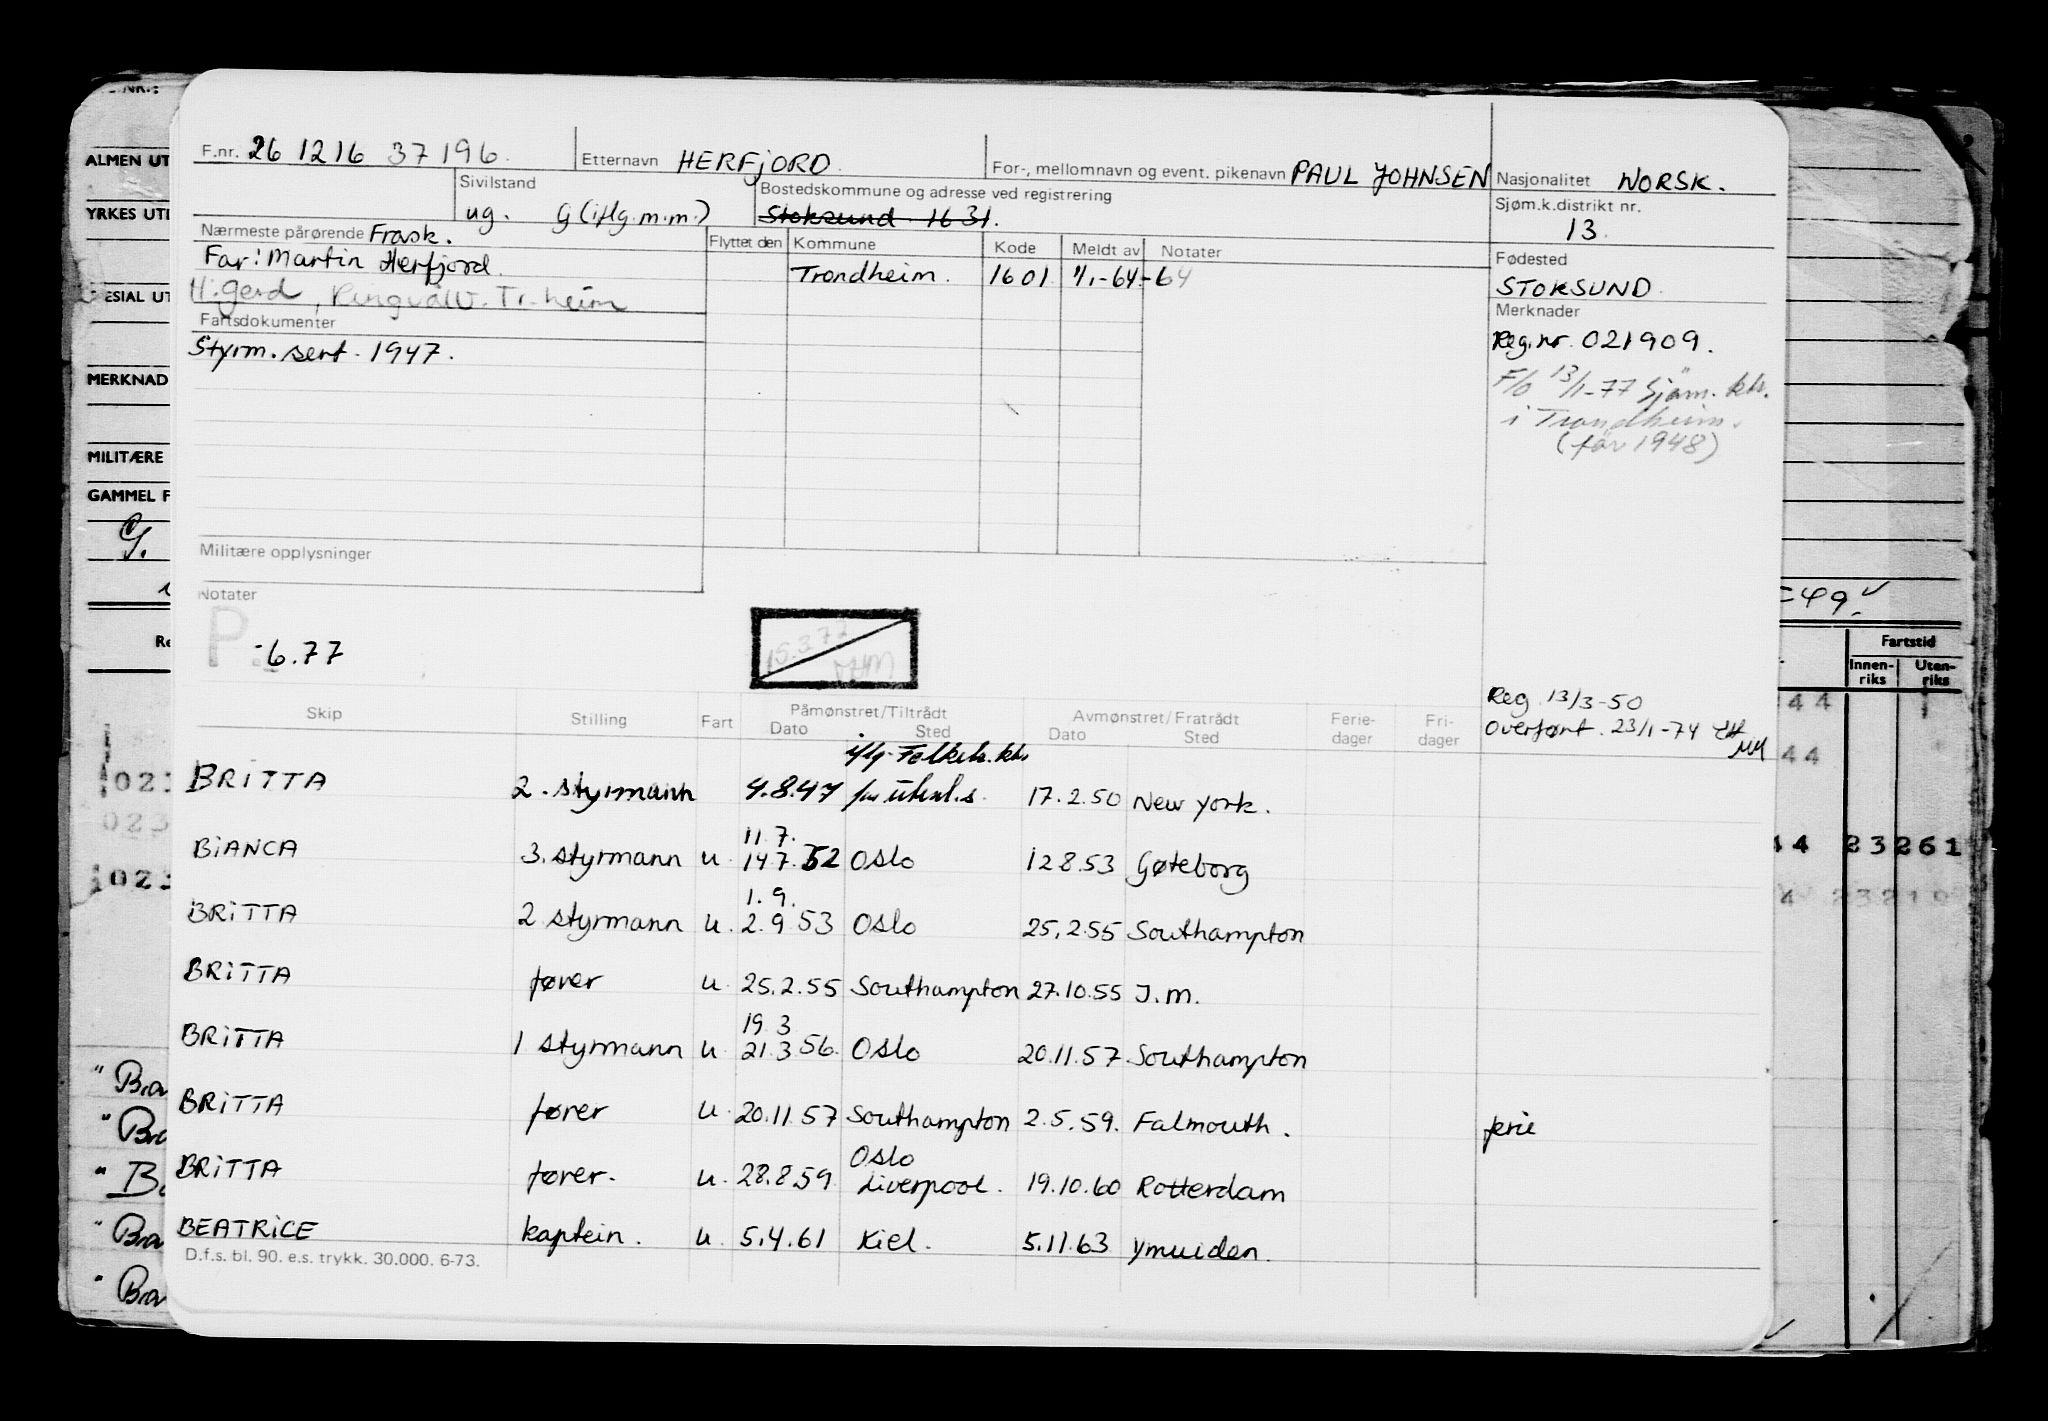 F.nr. 26 12 16 37196. Etternavn HERFJORD. For-, mellomnavn og event. pikenavn PAUL JOHNSEN Nasjonalitet NORSK.
Sivilstand ug. G (iflg. m.m.) Bostedskommune og adresse ved registrering Stoksund 1631. Sjøm.k.distrikt nr. 13.
Nærmeste pårørende Frask. Flyttet den Kommune Kode Meldt av Notater Fødested
Far: Martin Herfjord. Trondheim. 1601 1/1-64 -64 STOKSUND.
H: Gerd, Tr.heim Merknader
Fartsdokumenter Reg.nr. 021909.
Styrm. sert. 1947. F/o 13/1-77 Sjøm. ktr.
i Trondheim.
(før 1948)
Militære opplysninger
Notater
P.
-6.77
15.3.77
Reg. 13/3-50
Overført. 23/1-74
Skip Stilling Fart Påmønstret/Tiltrådt Avmønstret/Fratrådt Ferie- Fri-
Dato Sted Dato Sted dager dager
iflg. Folketr. ktr.
BRITTA 2. styrmann 4.8.47 for utenl.s. 17.2.50 New York.
11.7.
BIANCA 3. styrmann u. 14.7.52 Oslo 12.8.53 Gøteborg
1.9.
BRITTA 2 styrmann u. 2.9.53 Oslo 25.2.55 Southampton
BRITTA fører u. 25.2.55 Southampton 27.10.55 J.m.
19.3
BRITTA 1 styrmann u. 21.3.56. Oslo 20.11.57. Southampton
BRITTA fører u. 20.11.57 Southampton 2.5.59. Falmouth. ferie
Oslo
BRITTA fører. u. 28.8.59. Liverpool. 19.10.60 Rotterdam
BEATRICE kaptein. u. 5.4.61 Kiel. 5.11.63 Ymuiden.
D.f.s. bl. 90. e.s. trykk. 30.000. 6-73.
ALMEN UT
YRKES UTD
ESIAL UT
MERKNAD
MILITÆRE
GAMMEL F
G.
Re
49.
Fartstid
Innen-
riks
Uten-
riks
44
44
44 23261
4 23219